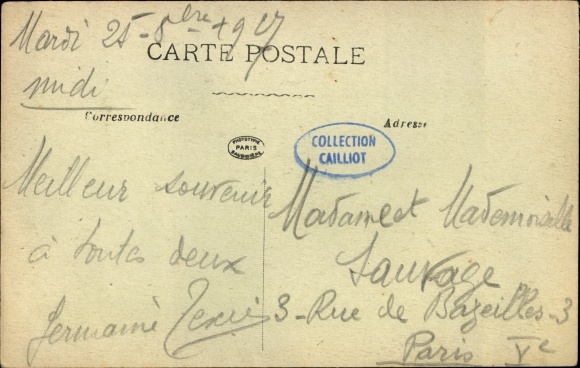 Mardi 25-8bre 1927
midi
CARTE POSTALE
Correspondance
Adresse
PHOTOTYPE
PARIS
COLLECTION
CAILLIOT
Meilleur souvenir
à toutes deux
Germaine
Madame et Mademoiselle
Sauvage
3 - Rue de Bazeilles - 3
Paris Ve